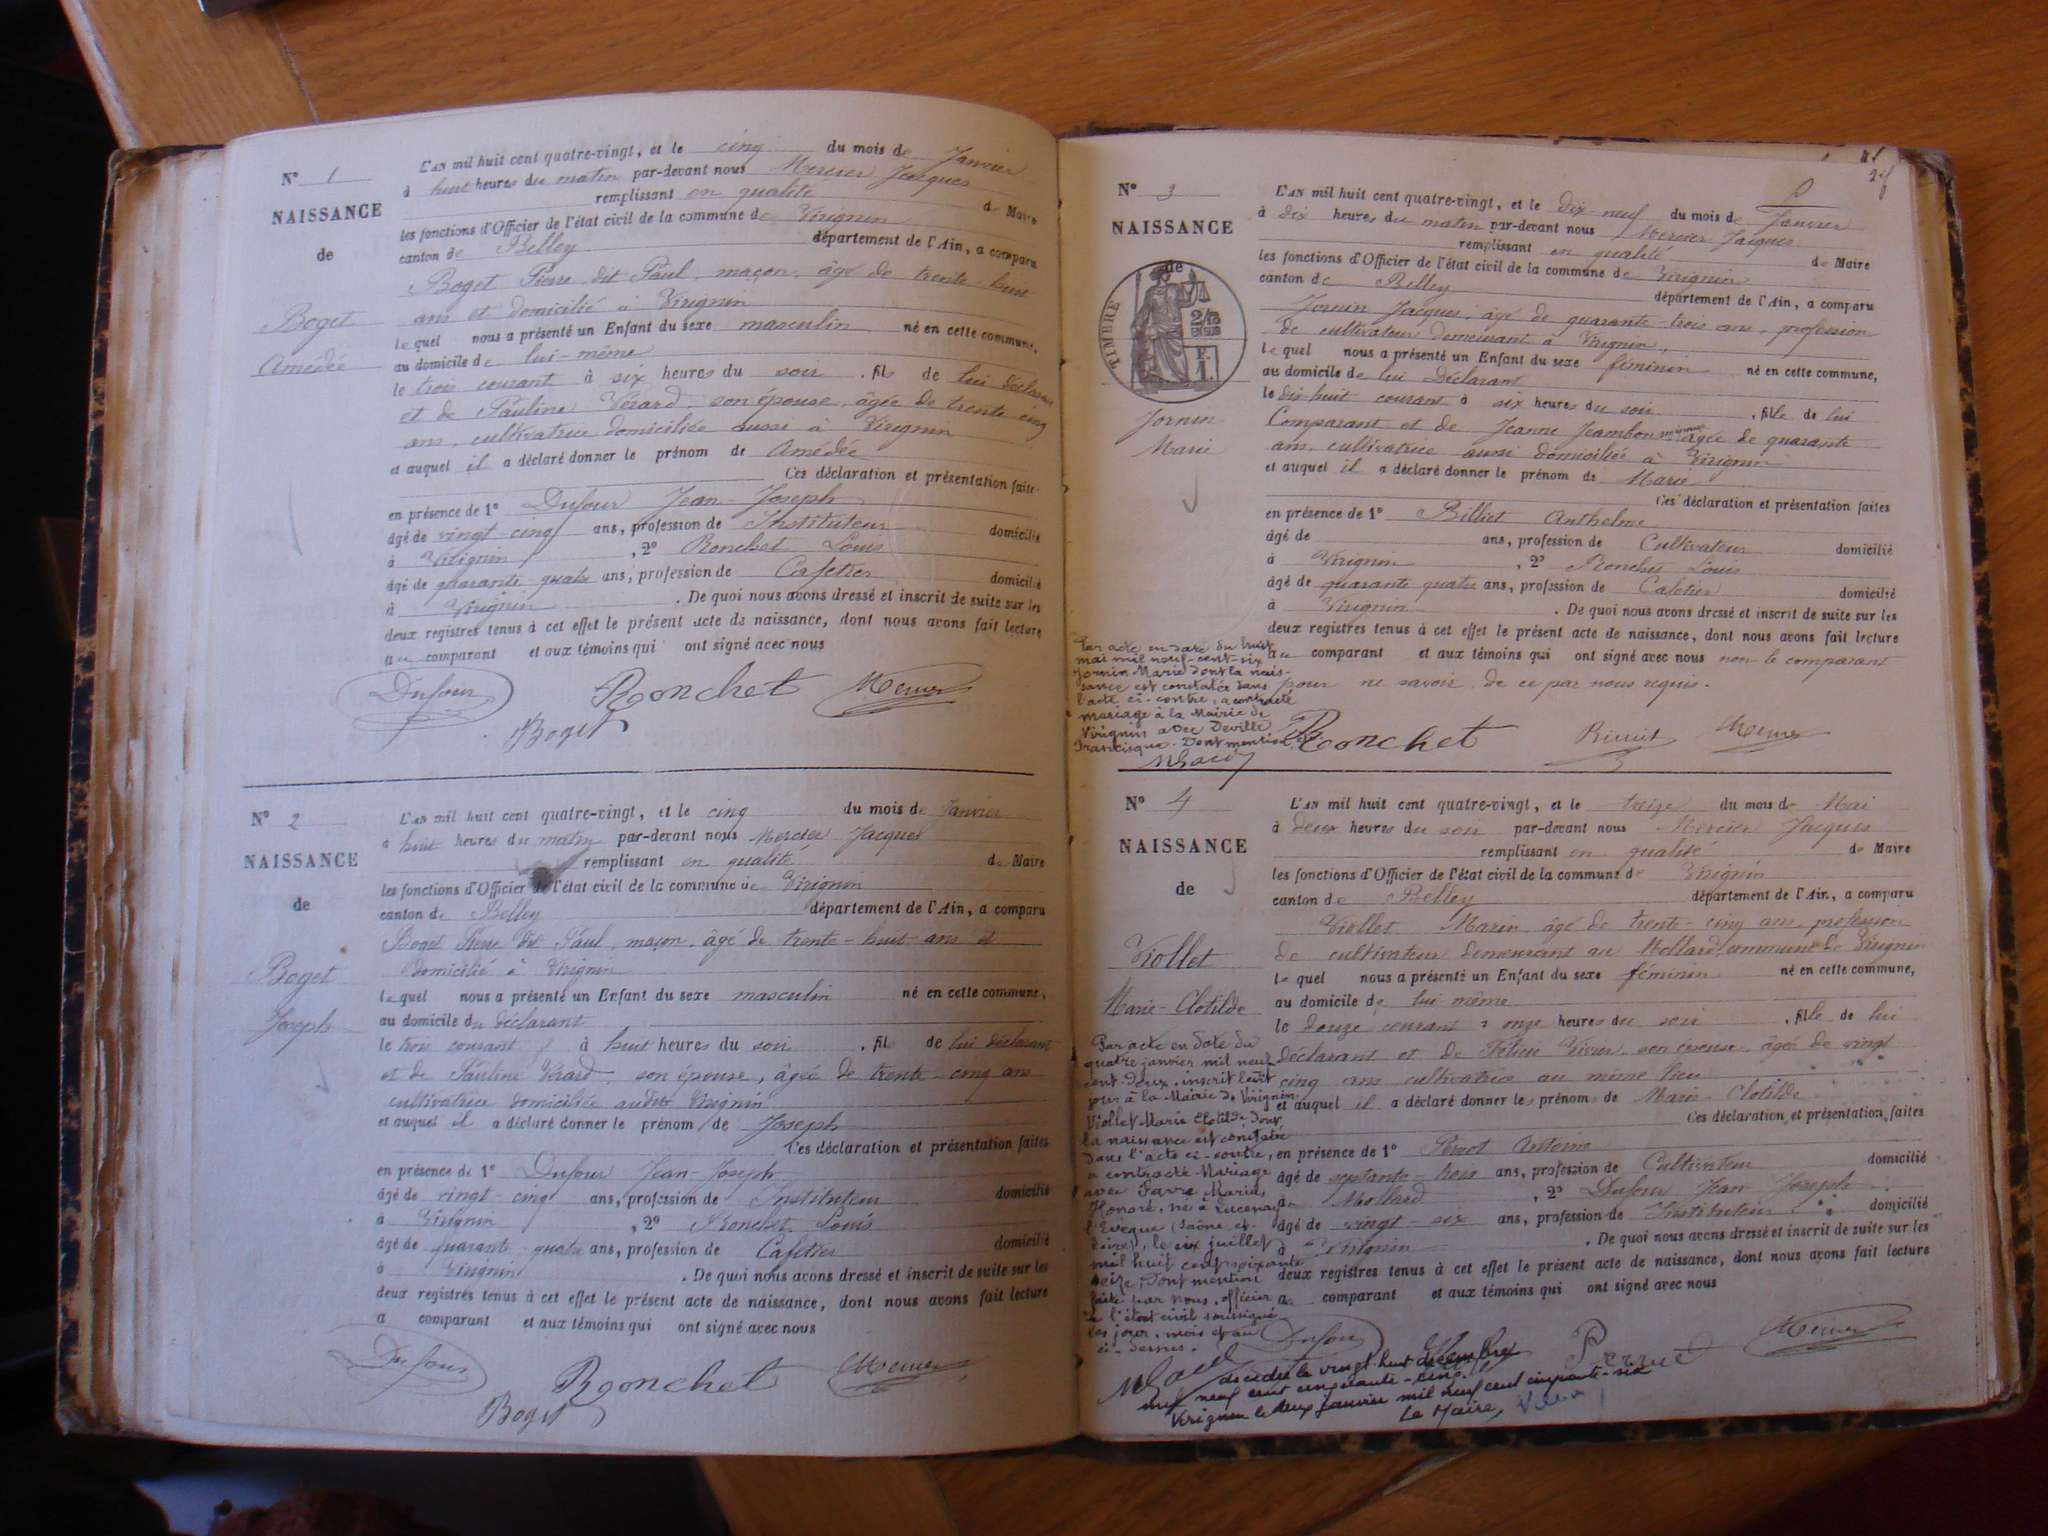 N° 1
NAISSANCE
de
Boget
Amédée
L'AN mil huit cent quatre-vingt, et le cinq du mois de Janvier
à huit heures du matin par-devant nous Mercier Jacques
remplissant en qualité de Maire
les fonctions d'Officier de l'état civil de la commune de Virignin
canton de Belley département de l'Ain, a comparu
Boget Pierre dit Paul, maçon, âgé de trente huit
ans et domicilié à Virignin
lequel nous a présenté un Enfant du sexe masculin né en cette commune,
au domicile de lui-même
le trois courant à six heures du soir, fils de lui déclarant
et de Pauline Vérard, son épouse, âgée de trente cinq
ans, cultivatrice domiciliée aussi à Virignin
et auquel il a déclaré donner le prénom de Amédée
Ces déclaration et présentation faites
en présence de 1° Dufour Jean-Joseph
âgé de vingt-cinq ans, profession de Instituteur domicilié
à Virignin, 2° Ronchet Louis
âgé de quarante quatre ans, profession de Cafetier domicilié
à Virignin. De quoi nous avons dressé et inscrit de suite sur les
deux registres tenus à cet effet le présent acte de naissance, dont nous avons fait lecture
au comparant et aux témoins qui ont signé avec nous
Dufour Ronchet Mercier
Boget
N° 2
NAISSANCE
de
Boget
Joseph
L'AN mil huit cent quatre-vingt, et le cinq du mois de Janvier
à huit heures du matin par-devant nous Mercier Jacques
remplissant en qualité de Maire
les fonctions d'Officier de l'état civil de la commune de Virignin
canton de Belley département de l'Ain, a comparu
Boget Pierre dit Paul, maçon, âgé de trente-huit ans et
domicilié à Virignin
lequel nous a présenté un Enfant du sexe masculin né en cette commune,
au domicile du déclarant
le trois courant à huit heures du soir, fils de lui déclarant
et de Pauline Vérard, son épouse, âgée de trente-cinq ans
cultivatrice domiciliée audit Virignin
et auquel il a déclaré donner le prénom de Joseph
Ces déclaration et présentation faites
en présence de 1° Dufour Jean-Joseph
âgé de vingt-cinq ans, profession de Instituteur domicilié
à Virignin, 2° Ronchet Louis
âgé de quarante-quatre ans, profession de Cafetier domicilié
à Virignin. De quoi nous avons dressé et inscrit de suite sur les
deux registres tenus à cet effet le présent acte de naissance, dont nous avons fait lecture
a comparant et aux témoins qui ont signé avec nous
Dufour Ronchet Mercier
Boget
N° 3
NAISSANCE
de
TIMBRE
2/10
EN SUS
Jornin
Marie
L'AN mil huit cent quatre-vingt, et le Dix-neuf du mois de Janvier
à dix heures du matin par-devant nous Mercier Jacques
remplissant en qualité de Maire
les fonctions d'Officier de l'état civil de la commune de Virignin
canton de Belley département de l'Ain, a comparu
Jornin Jacques, âgé de quarante-trois ans, profession
de cultivateur demeurant à Virignin,
lequel nous a présenté un Enfant du sexe féminin né en cette commune,
au domicile de lui Déclarant
le dix-huit courant à six heures du soir, fille de lui
Comparant et de Jeanne Jambon âgée de quarante
ans, cultivatrice aussi domiciliée à Virignin
et auquel il a déclaré donner le prénom de Marie
Ces déclaration et présentation faites
en présence de 1° Billiet Anthelme
âgé de ans, profession de Cultivateur domicilié
à Virignin, 2° Ronchet Louis
âgé de quarante quatre ans, profession de Cafetier domicilié
à Virignin. De quoi nous avons dressé et inscrit de suite sur les
deux registres tenus à cet effet le présent acte de naissance, dont nous avons fait lecture
au comparant et aux témoins qui ont signé avec nous non le comparant
pour ne savoir, de ce par nous requis.
Par acte en date du huit
mai mil neuf-cent-six
Jornin Marie dont la nais-
sance est constatée dans
l'acte ci-contre, a contracté
mariage à la Mairie de
Virignin avec Deville
Francisque. Dont mention
Ronchet Mercier
N° 4
NAISSANCE
de
Viollet
Marie-Clotilde
L'AN mil huit cent quatre-vingt, et le treize du mois de Mai
à deux heures du soir par-devant nous Mercier Jacques
remplissant en qualité de Maire
les fonctions d'Officier de l'état civil de la commune de Virignin
canton de Belley département de l'Ain, a comparu
Viollet Marin, âgé de trente-cinq ans, profession
de cultivateur demeurant au Mollard, commune de Virignin
lequel nous a présenté un Enfant du sexe féminin né en cette commune,
au domicile de lui-même
le douze courant à onze heures du soir, fille de lui
déclarant et de Félicie Vivier, son épouse, âgée de vingt
cinq ans cultivatrice au même lieu
et auquel il a déclaré donner les prénoms de Marie Clotilde
Ces déclaration et présentation faites
en présence de 1° Antoine
âgé de septante-trois ans, profession de Cultivateur domicilié
à Mollard, 2° Dufour Jean Joseph
âgé de vingt-six ans, profession de Instituteur domicilié
à Virignin. De quoi nous avons dressé et inscrit de suite sur les
deux registres tenus à cet effet le présent acte de naissance, dont nous avons fait lecture
au comparant et aux témoins qui ont signé avec nous
Par acte en date du
quatre janvier mil neuf
cent deux, inscrit ledit
jour à la Mairie de Virignin
Viollet Marie Clotilde, dont
la naissance est constatée
dans l'acte ci-contre,
a contracté Mariage
avec Favre Marius
Honoré, né à Lucenay
l'Evêque (Saône et
Loire), le six juillet
mil huit cent soixante
seize. Dont mention
faite par nous, officier
de l'état civil soussigné
les jour, mois et an
ci-dessus.
Dufour Mercier
décédée le vingt huit décembre
mil neuf cent cinquante-cinq
Virignin le deux janvier mil neuf cent cinquante-six
Le Maire,